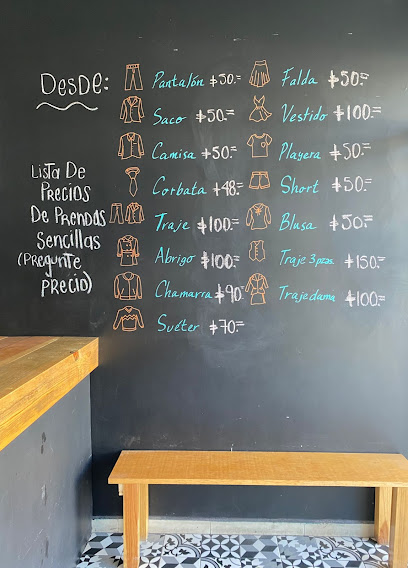 Desde:
Lista De
Precios
De Prendas
Sencillas
(Pregunte
Precio)
Pantalón $50.=
Saco $50.=
Camisa $50.=
Corbata $48.=
Traje $100.=
Abrigo $100.=
Chamarra $90.=
Suéter $70.=
Falda $50.=
Vestido $100.=
Playera $50.=
Short $50.=
Blusa $50.=
Traje 3 pzas. $150.=
Traje dama $100.=